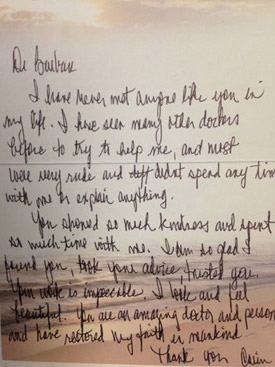 Dr Barbara
I have never met anyone like you in
my life. I have seen many other doctors
before to try to help me, and most
were very rude and didnt spend any time
with me or explain anything.
You showed so much kindness and spent
so much time with me. I am so glad I
found you, took your advice trusted you.
Your work is impeccable. I look and feel
beautiful. You are an amazing doctor and person
and have restored my faith in mankind
Thank you